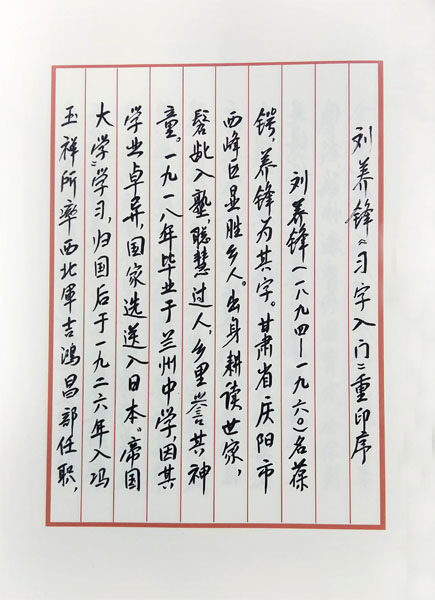 刘养锋《习字入门》重印序
刘养锋(一八九四—一九六〇)名葆
锷,养锋为其字。甘肃省庆阳市
西峰区显胜乡人。出身耕读世家,
髫龀入塾,聪慧过人,乡里誉其神
童。一九一八年毕业于兰州中学,因其
学业卓异,国家选送入日本“帝国
大学”学习,归国后于一九二六年入冯
玉祥所率西北軍吉鸿昌部任职,